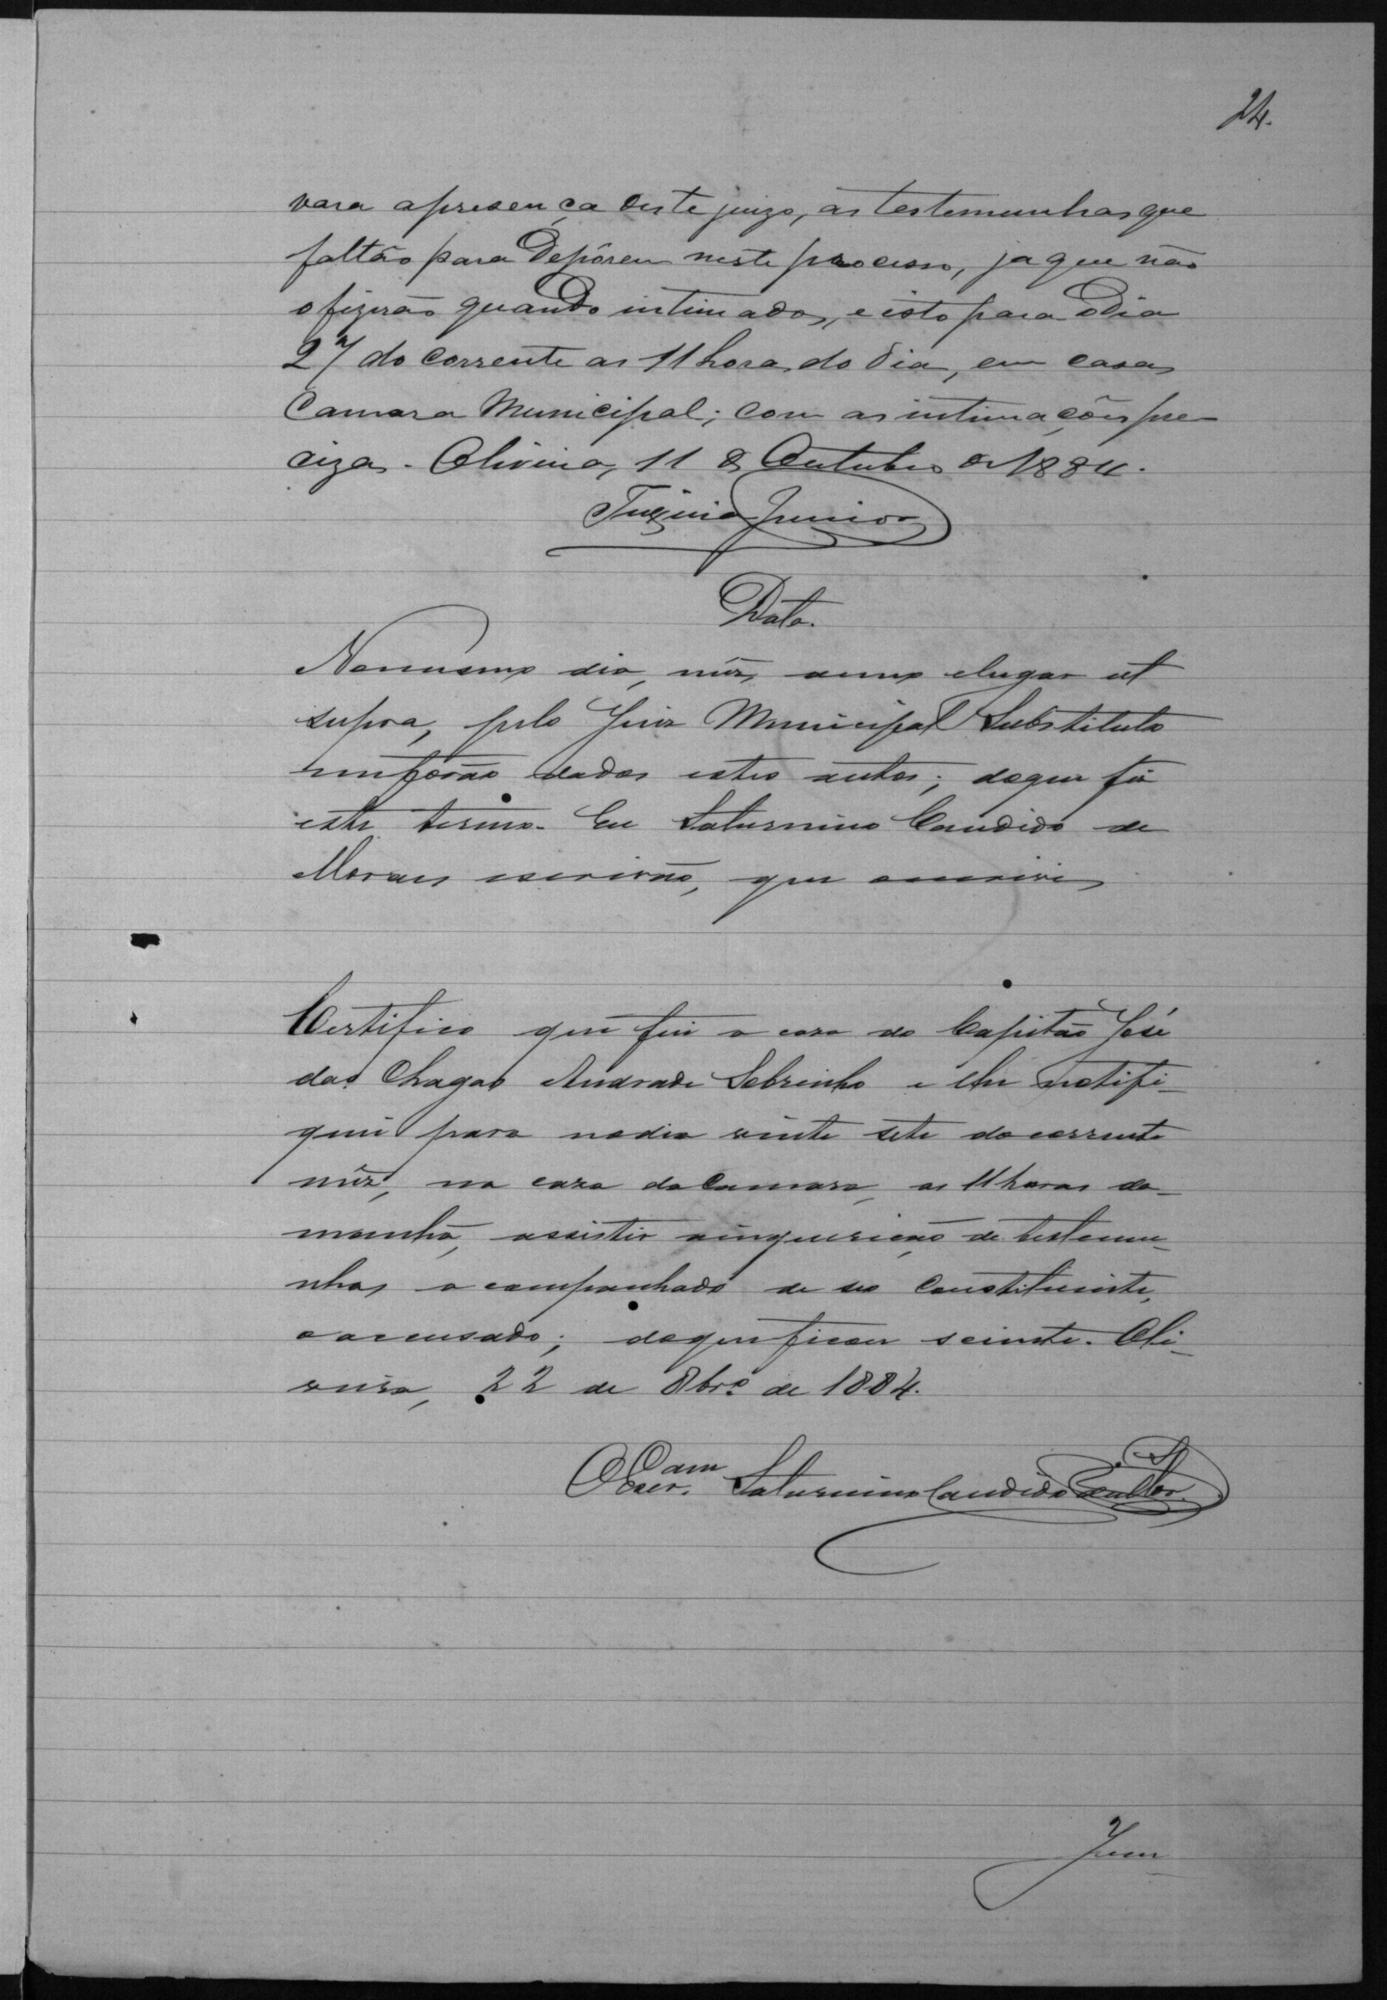 24.
vara apresença deste juizo, as testemunhas que
faltão para depôrem neste processo, ja que não
o fizerão quando intimados, e isto para o dia
27 do corrente as 11 hora do dia, em casa
Camara Municipal; com as intimações pre-
cizas. Oliveira, 11 de Outubro de 1884.
Junior
Data.
No mesmo dia, mêz, anno e lugar ut
supra, pelo Juiz Municipal Substituto
me forão dados estes autos; do que fiz
este termo. Eu Saturnino Candido de
Moraes escrivão, que o escrivi
Certifico que fui a caza do Capitão José
das Chagas Andrade Sobrinho e lhe notifi-
quei para no dia vinte sete do corrente
mêz, na caza da Camara, as 11 horas da
manhã, assistir a inquirição de testemu-
nhas acompanhado de seo constituinte,
o accusado; do que ficou sciente. Oli-
veira, 22 de 8brº de 1884.
O Escr.am Saturnino Candido
Jun